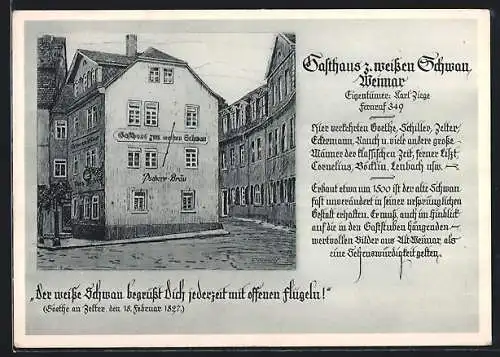 Gasthaus z. weißen Schwan
Weimar
Eigentümer: Karl Ziege
Fernruf 349
Hier verkehrten Goethe, Schiller, Zelter,
Eckermann, Rauch u. viele andere große
Männer der klassischen Zeit, ferner Lißt,
Cornelius, Böcklin, Lenbach usw. —
Erbaut etwa um 1500 ist der alte Schwan
fast unverändert in seiner ursprünglichen
Gestalt erhalten. Er muß, auch im Hinblick
auf die in den Gaststuben hängenden
wertvollen Bilder aus Alt-Weimar als
eine Sehenswürdigkeit gelten.
Gasthaus zum weißen Schwan
Bräu
„Der weiße Schwan begrüßt Dich jederzeit mit offenen Flügeln!"
(Goethe an Zelter, den 18. Februar 1827.)